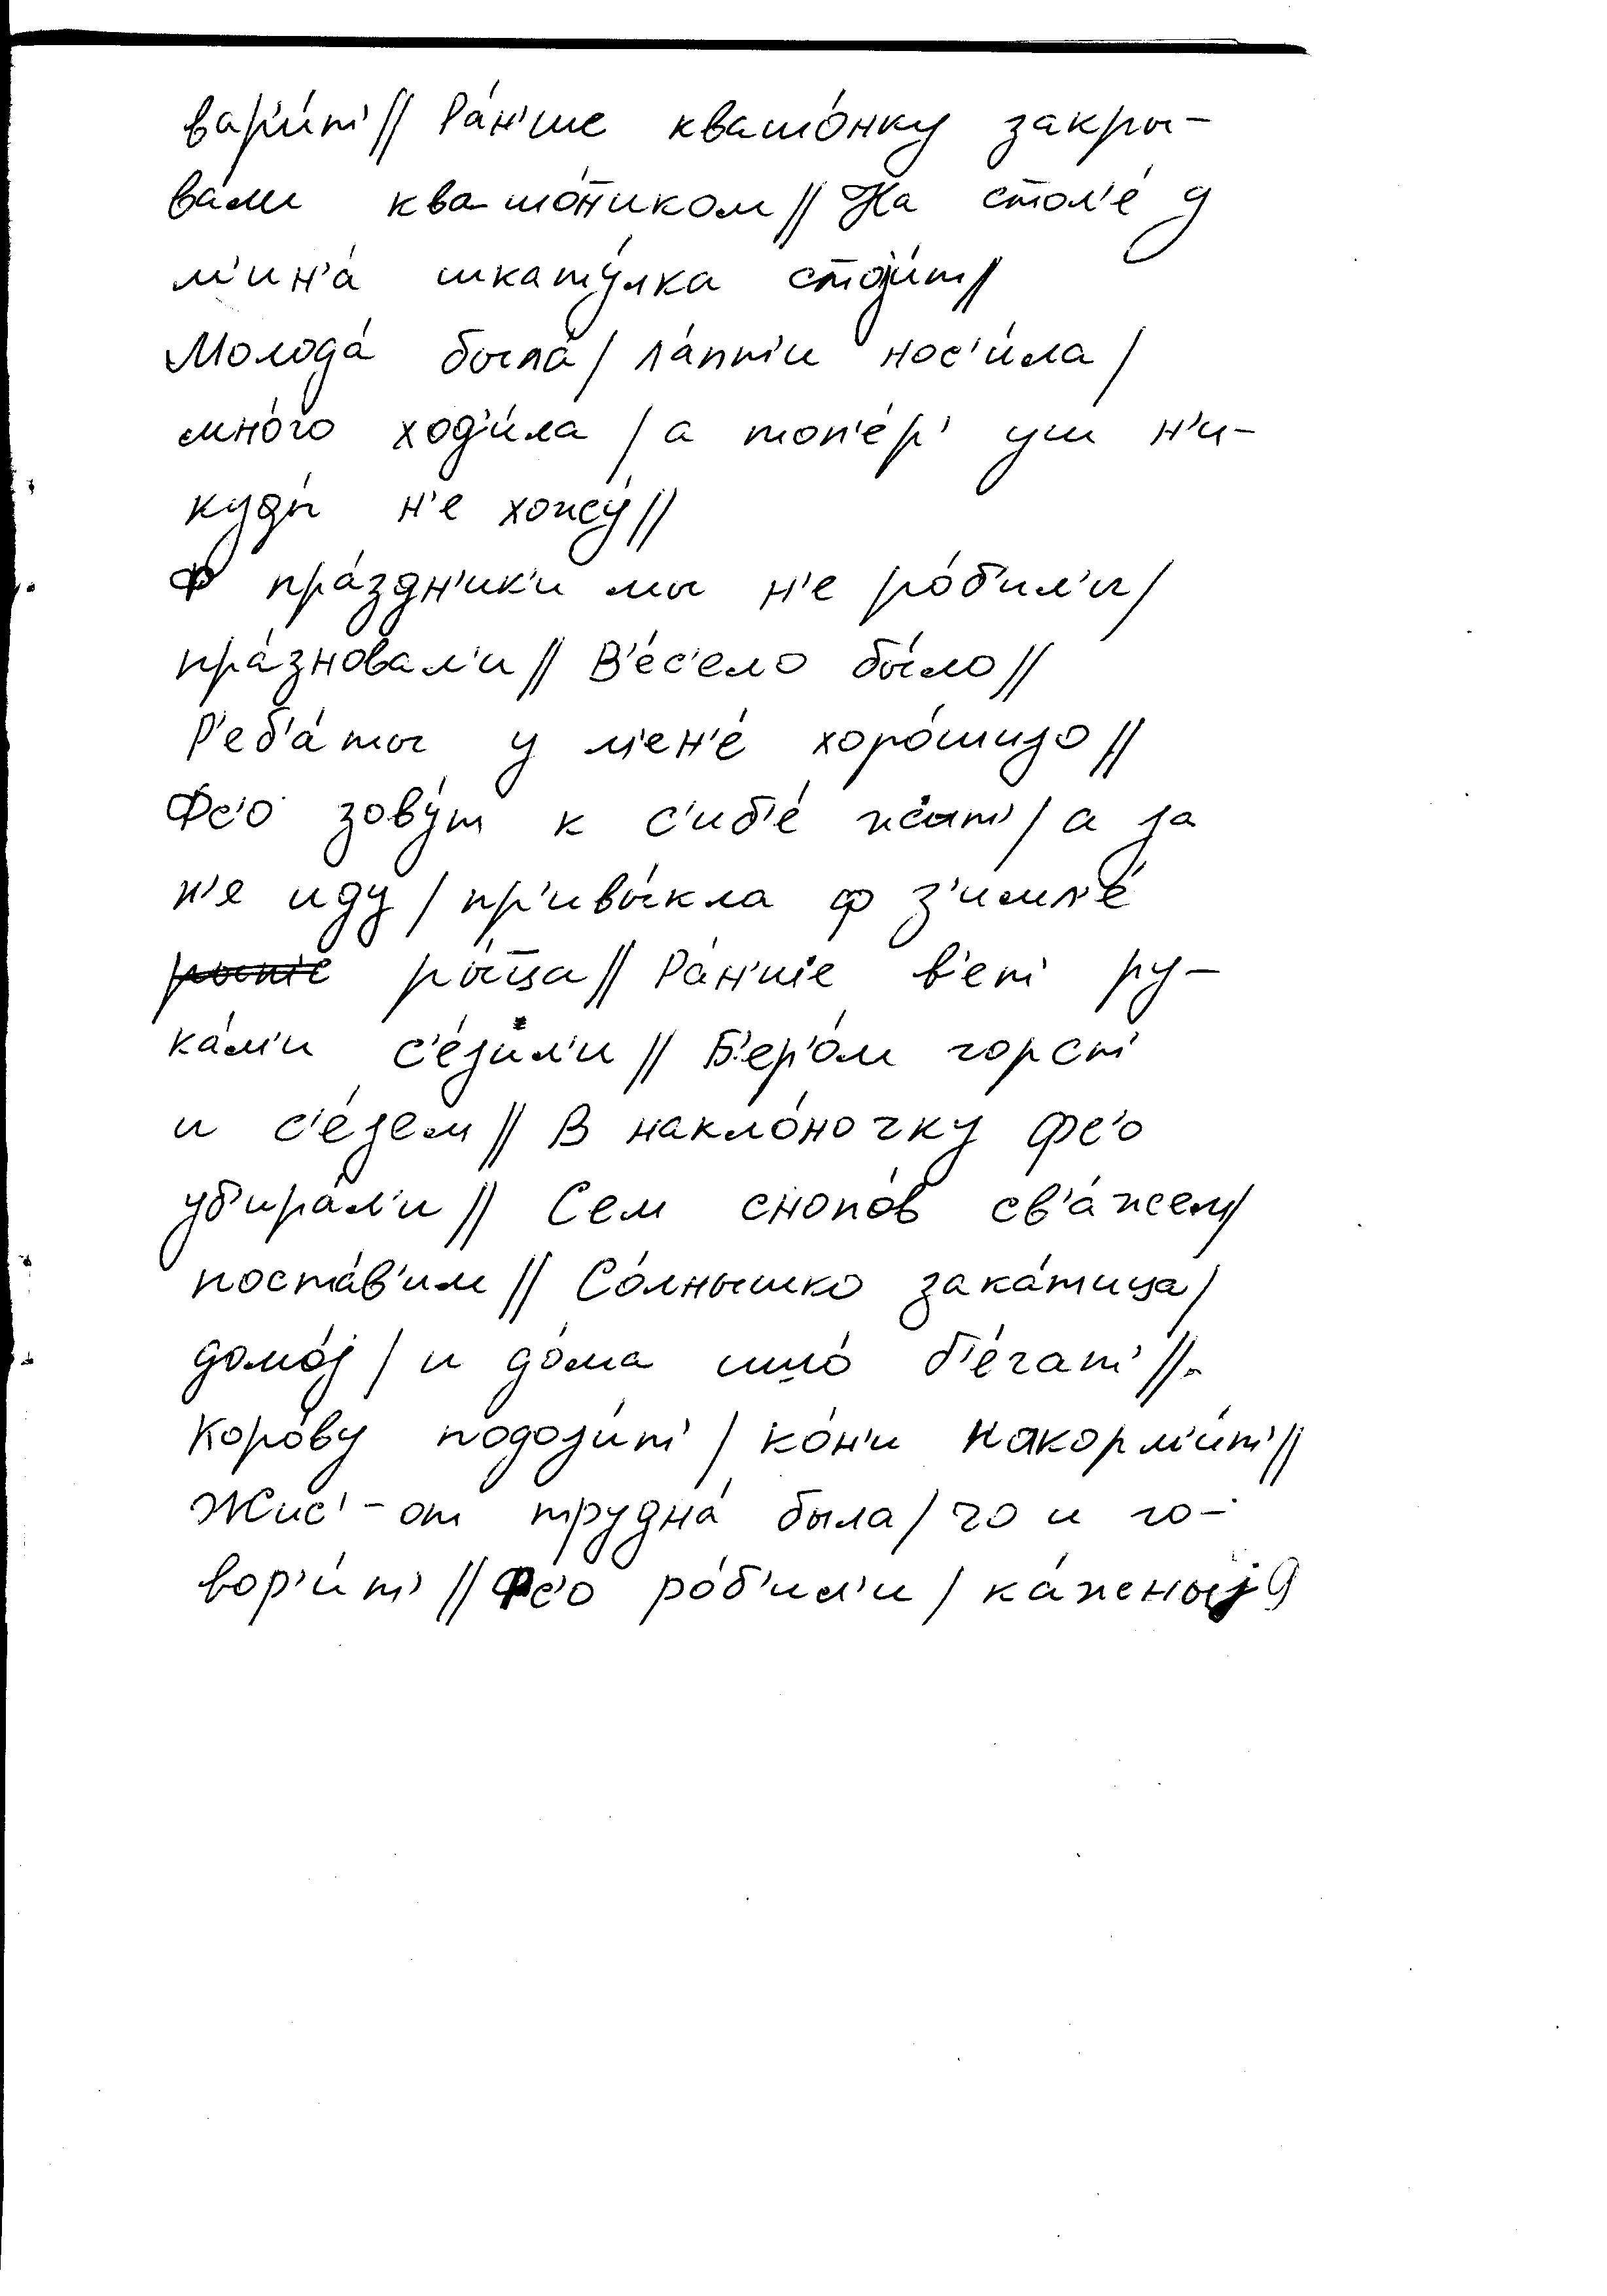 вар'и́т' // Ра́н'ше квашо́нку закры-
ва́ли квашо́н'иком // На стол'е́ у
м'ин'а́ шкату́лка стоjи́т //
Молода́ была́ / ла́пт'и нос'и́ла /
мно́го ход'и́ла / а топ'е́р' уш н'и-
куды́ н'е хожу́ //
Ф пра́здн'ик'и мы н'е ро́б'ил'и /
пра́зновал'и // В'е́с'ело бы́ло //
Р'еб'а́ты у м'ен'е́ хоро́шиjо //
Фс'о зову́т к с'иб'е́ жыт' / а jа
н'е иду / пр'ивы́кла ф з'имл'е́
ры́цца // Ра́н'ше в'ет' ру-
ка́м'и с'е́jал'и // Б'ер'о́м горст'
и с'е́jем // В накло́ночку фс'о
уб'ира́л'и // Сем снопо́в св'а́жем /
поста́в'им // Со́лнышко зака́тица /
домо́j / и до́ма ишо́ б'е́гат' //
Коро́ву подоjи́т' / ко́н'и накорм'и́т' //
Жис'-от трудна́ была / чо и го-
вор'и́т' // Фс'о ро́б'ил'и / ка́жныj д